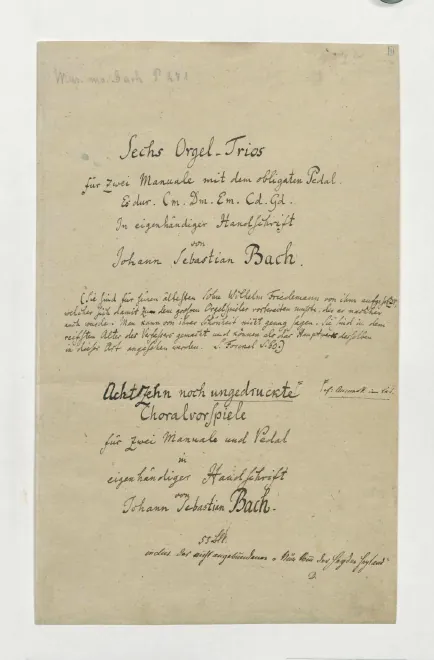 Mus. ms. Bach P 271
Sechs Orgel-Trios
für zwei Manuale mit dem obligaten Pedal.
Esdur. Cm. Dm. Em. Cd. Gd.
In eigenhändiger Handschrift
von
Johann Sebastian Bach.
(Sie sind für seinen ältesten Sohn Wilhelm Friedemann von ihm aufgesetzt
welcher sich damit zu dem großen Orgelspieler vorbereiten mußte, der er nachher
auch wurde. Man kann von ihrer Schönheit nicht genug sagen. Sie sind in dem
reifsten Alter des Verfassers gemacht und können als das Hauptwerk desselben
in dieser Art angesehen werden. S. Forkel S. 60)
Achtzehn noch ungedruckte
Choralvorspiele
für zwei Manuale und Pedal
in
eigenhändiger Handschrift
von
Johann Sebastian Bach.
53 Bll.
"Nun komm der Heyden Heyland"